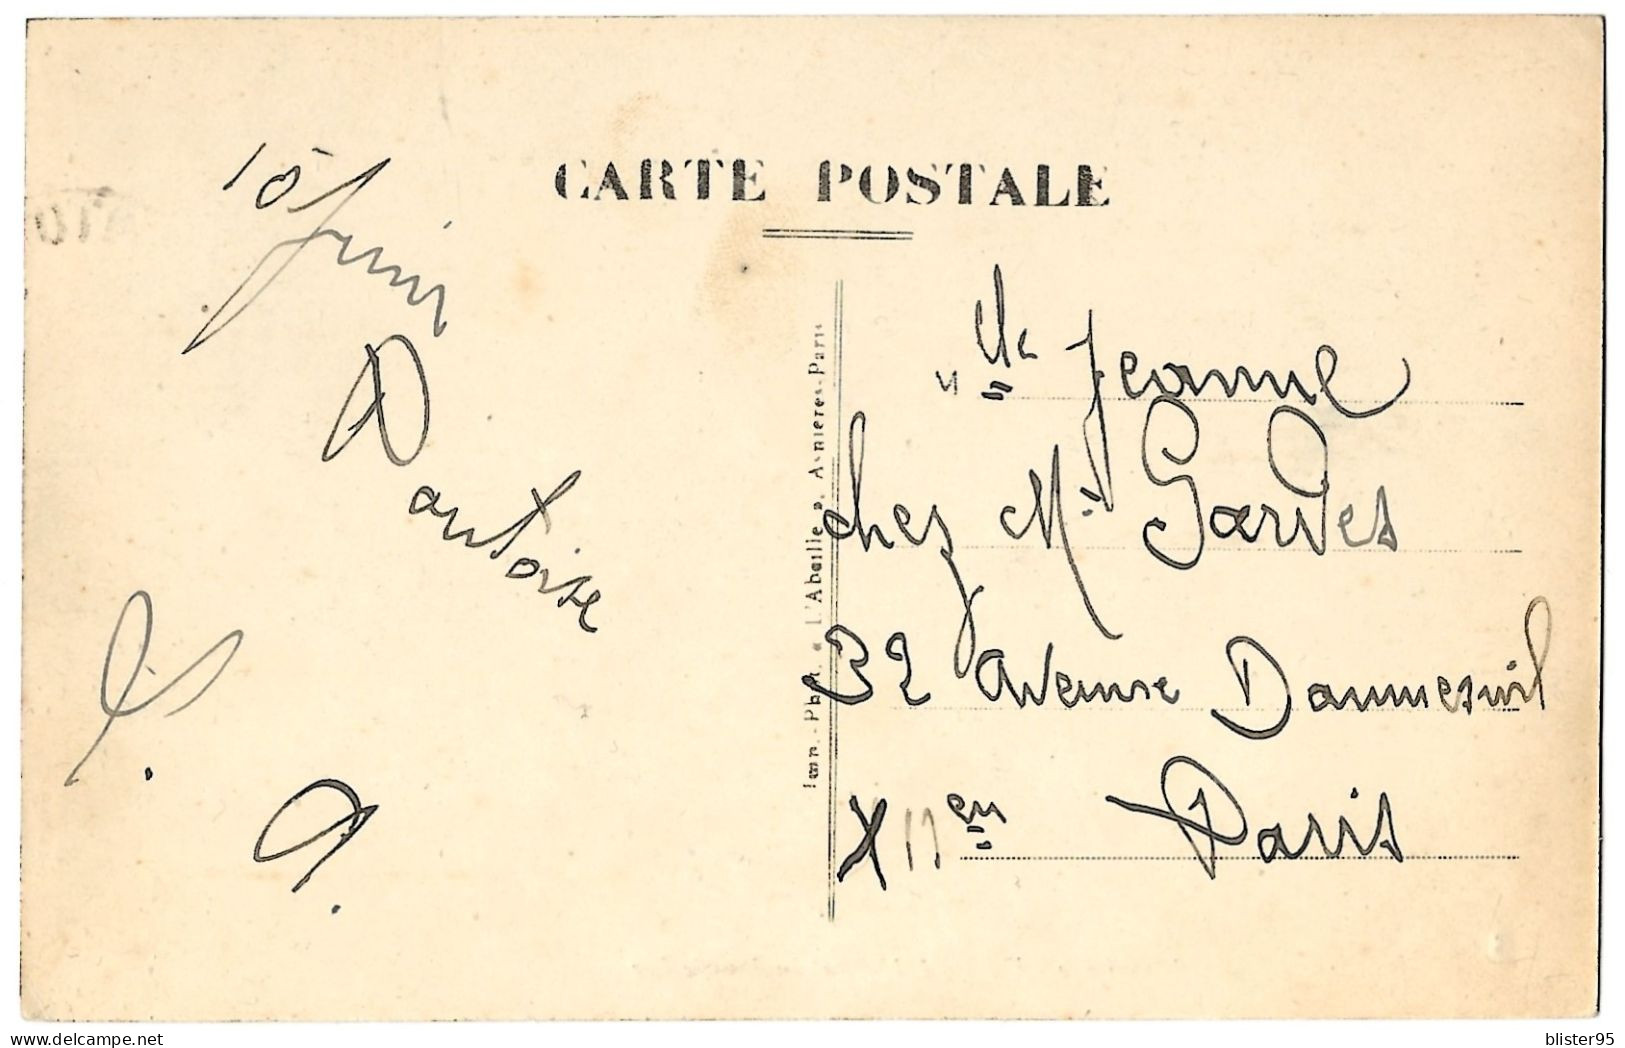 CARTE POSTALE
10 Juin
Pontoise
Imp.-Phot. « L'Abeille », Asnières-Paris
Mlle Jeanne
chez Mr Gardes
32 Avenue Daumesnil
XIIem Paris
blister95